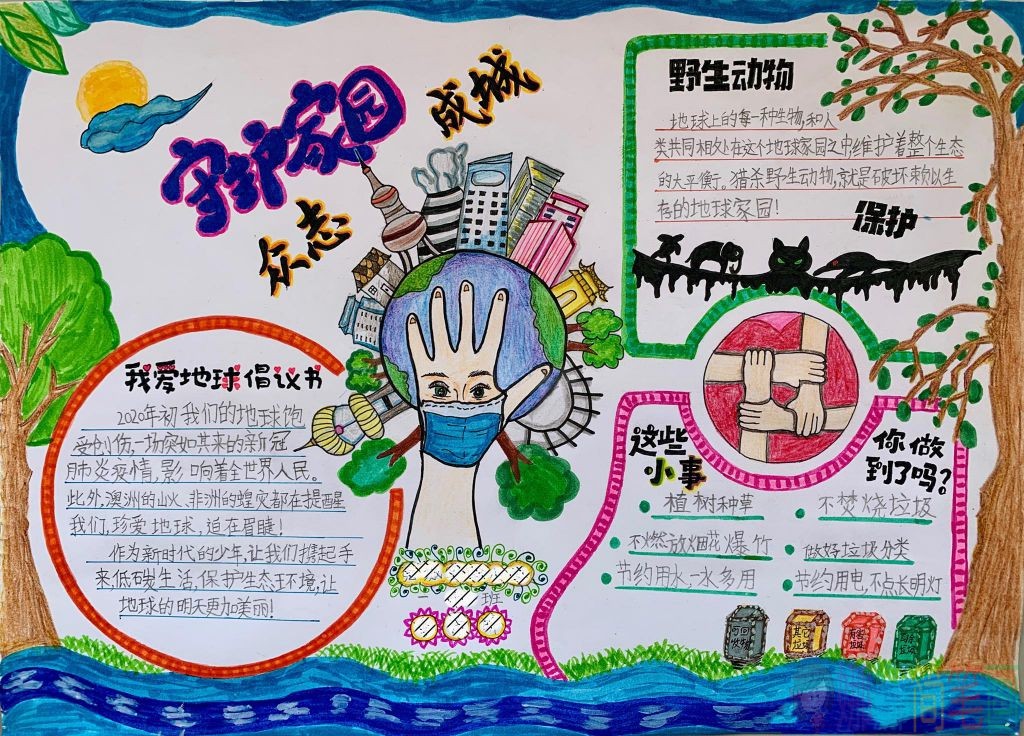 守护家园
众志
成城
我爱地球倡议书
2020年初我们的地球饱
受创伤,一场突如其来的新冠
肺炎疫情,影响着全世界人民。
此外,澳洲的山火、非洲的蝗灾都在提醒
我们,珍爱地球,迫在眉睫!
作为新时代的少年,让我们携起手
来低碳生活,保护生态环境,让
地球的明天更加美丽!
班
野生动物
地球上的每一种生物,和人
类共同相处在这个地球家园之中维护着整个生态
的大平衡。猎杀野生动物,就是破坏赖以生
存的地球家园!
保护
这些
小事
你做
到了吗?
植树种草
不焚烧垃圾
不燃放烟花爆竹
做好垃圾分类
节约用水一水多用
节约用电,不点长明灯
可回
收物
其它
垃圾
有害
垃圾